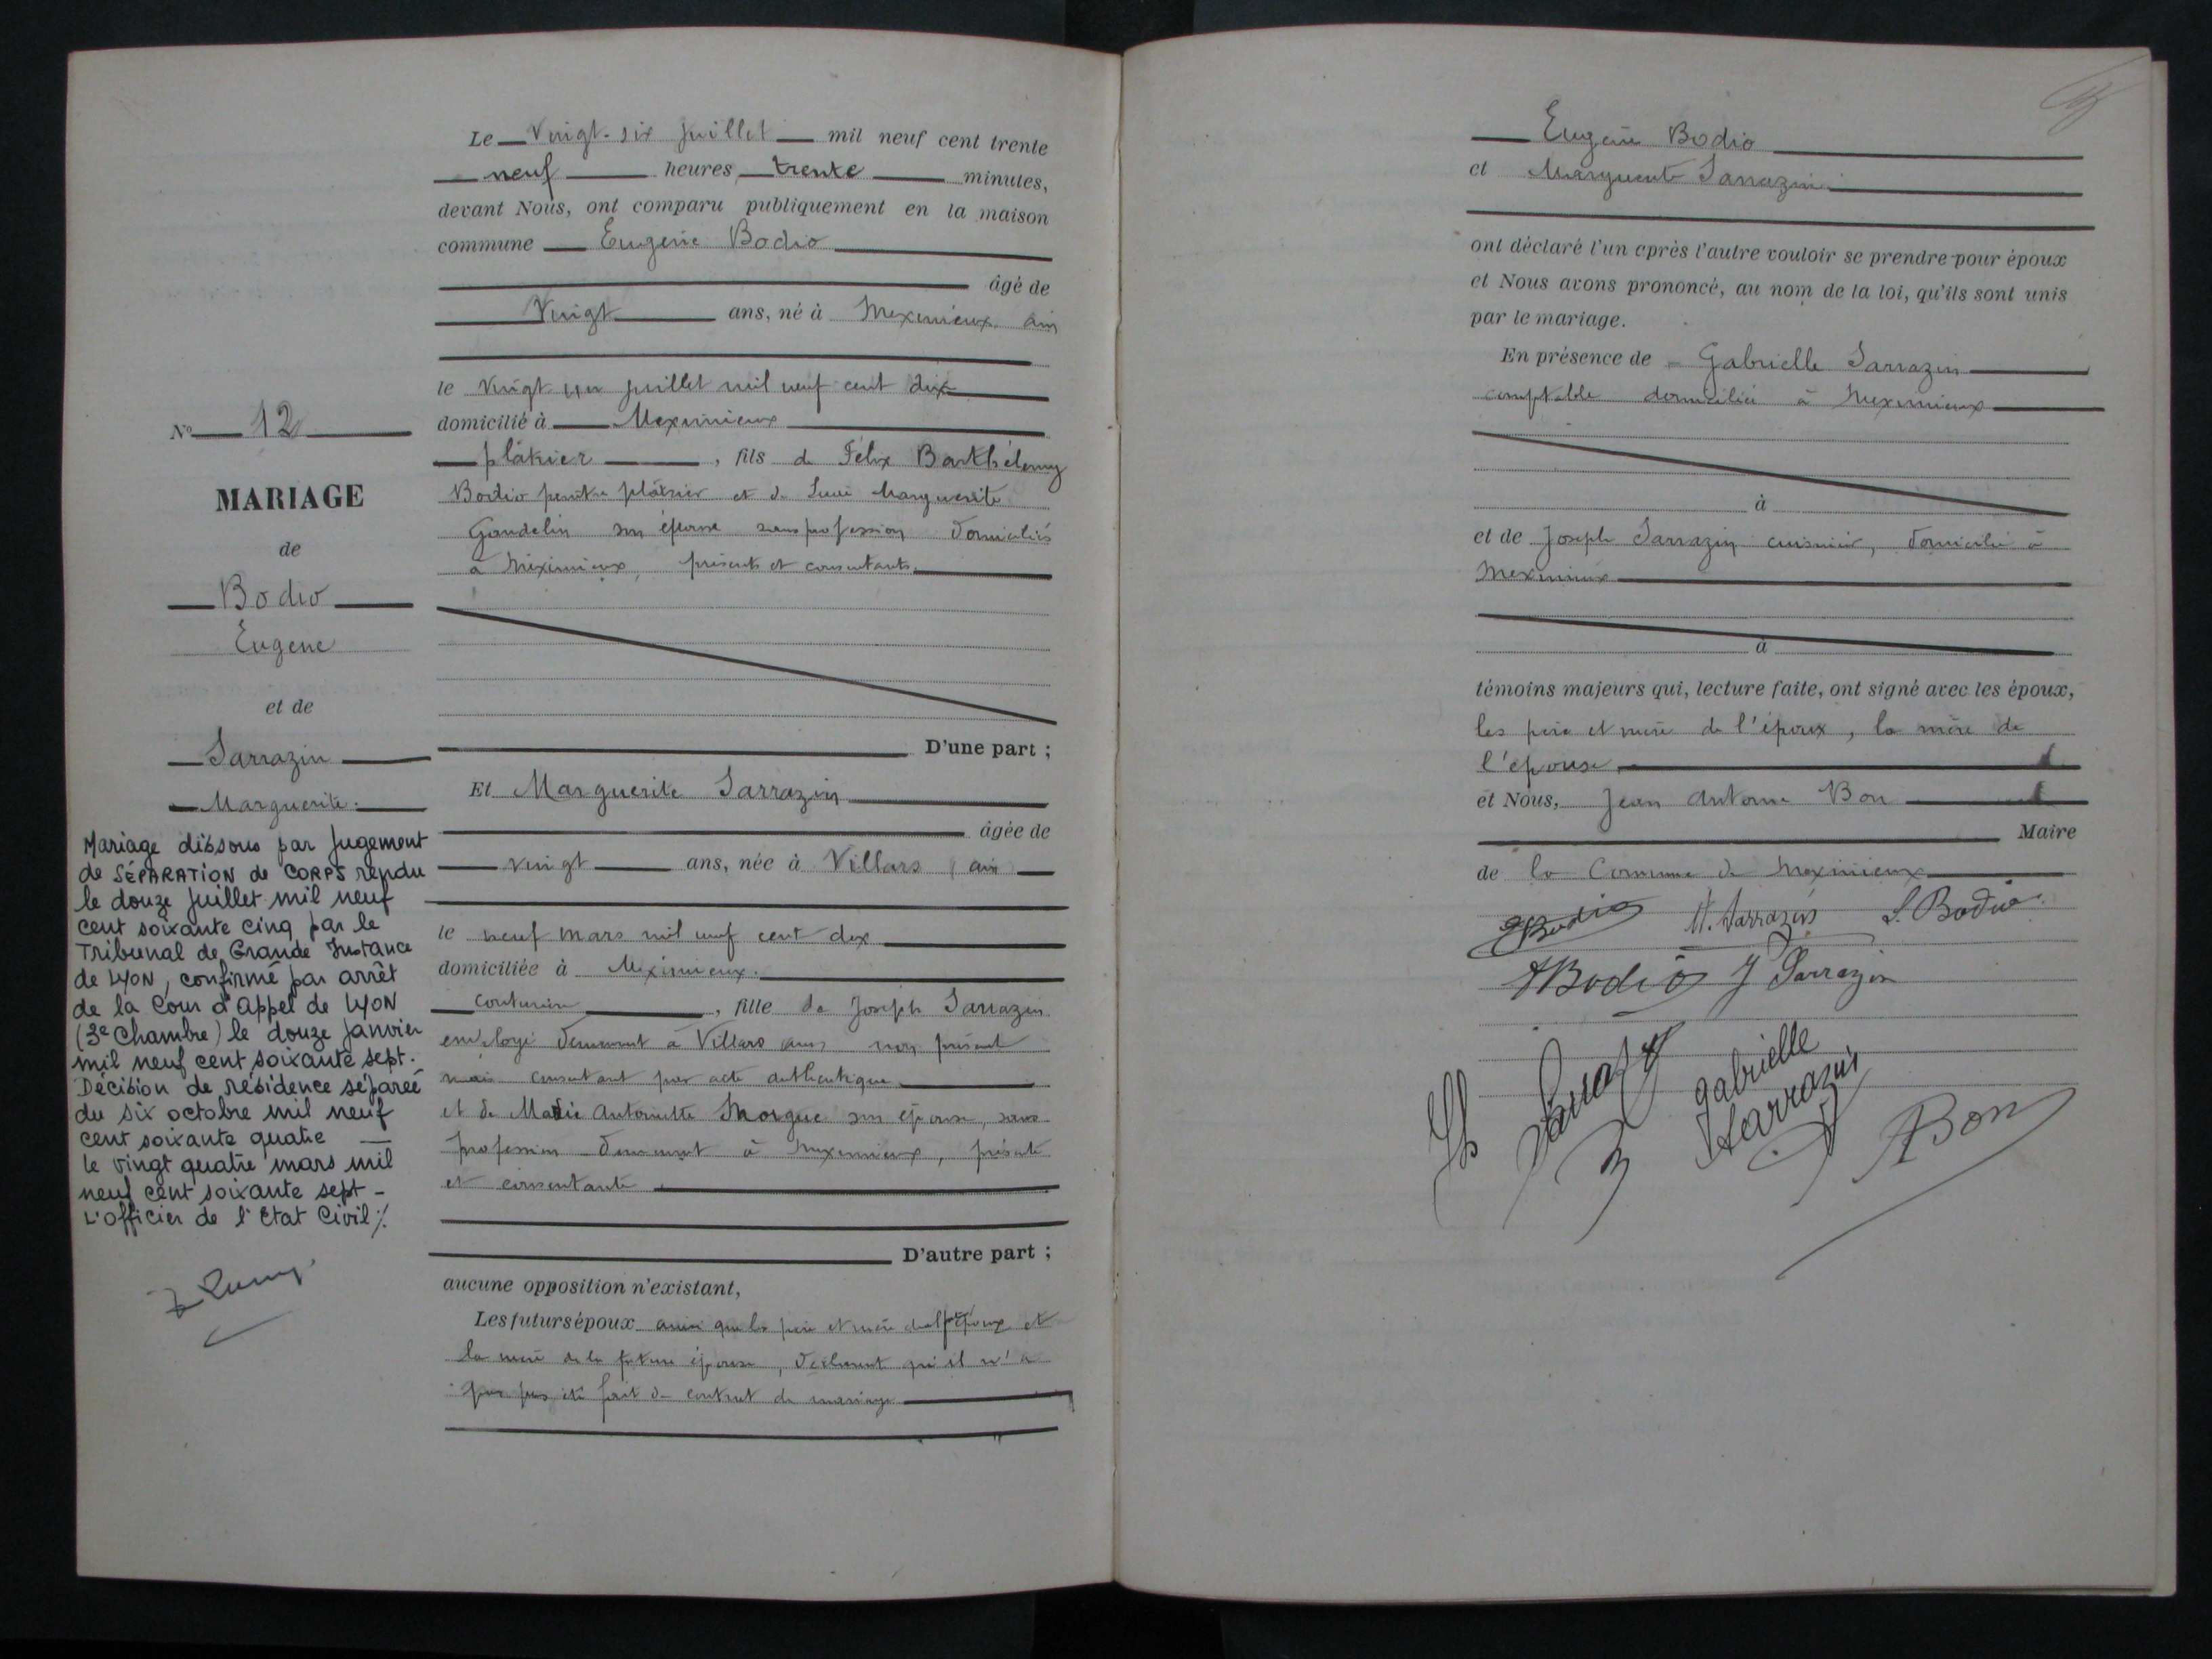 N° 12
MARIAGE
de
Bodio
Eugene
et de
Sarrazin
Marguerite.
Mariage dissous par Jugement
de SÉPARATION de CORPS rendu
le douze Juillet mil neuf
cent soixante cinq par le
Tribunal de Grande Instance
de LYON, confirmé par arrêt
de la Cour d'Appel de LYON
(3e Chambre) le douze janvier
mil neuf cent soixante sept.
Décision de résidence séparée
du six octobre mil neuf
cent soixante quatre
le vingt quatre mars mil
neuf cent soixante sept -
L'officier de l'Etat Civil ./.
Le Vingt-six juillet mil neuf cent trente
neuf heures trente minutes,
devant Nous, ont comparu publiquement en la maison
commune Eugène Bodio
âgé de
Vingt ans, né à Meximieux Ain
le vingt un juillet mil neuf cent dix
domicilié à Meximieux
plâtrier, fils de Félix Barthélemy
Bodio peintre plâtrier et de Marguerite
Gondelin son épouse sans profession domiciliés
à Méximieux, présents et consentants.
D'une part ;
Et Marguerite Sarrazin
âgée de
vingt ans, née à Villars (ain
le neuf mars mil neuf cent dix
domiciliée à Meximieux.
couturière, fille de Joseph Sarrazin
employé demeurant à Villars (ain) non présent
mais consentant par acte authentique
et de Marie Antoinette Morgue son épouse, sans
profession demeurant à Meximieux, présente
et consentante
D'autre part ;
aucune opposition n'existant,
Les futurs époux ainsi que les père et mère de l'époux et
la mère de la future épouse, déclarent qu'il n'a
pas été fait de contrat de mariage
Eugène Bodio
et Marguerite Sarrazin
ont déclaré l'un après l'autre vouloir se prendre pour époux
et Nous avons prononcé, au nom de la loi, qu'ils sont unis
par le mariage.
En présence de Gabrielle Sarrazin
comptable domiciliée à Meximieux
à
et de Joseph Sarrazin cuisinier, domicilié à
Meximieux
à
témoins majeurs qui, lecture faite, ont signé avec les époux,
les père et mère de l'époux, la mère de
l'épouse
et Nous, Jean Antoine Bon
Maire
de la Commune de Meximieux
EBodio M. Sarrazin L. Bodio
Bodio J Sarrazin
Gabrielle
Sarrazin
Bon